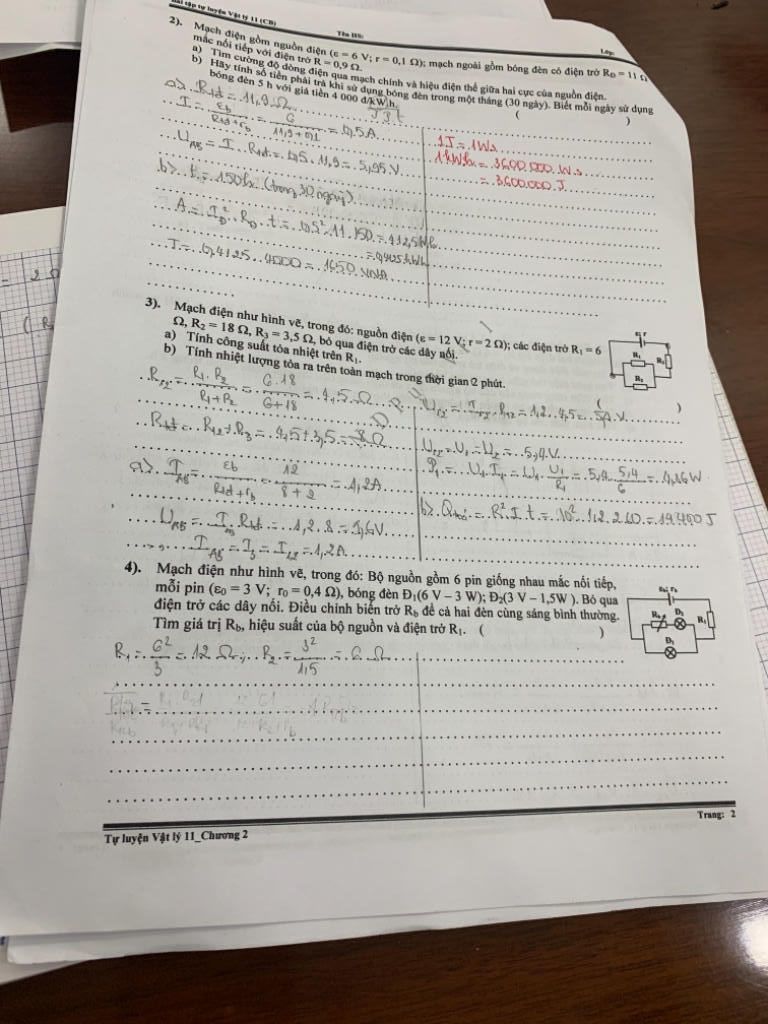 Bài tập tự luyện Vật lý 11 (CB)
Tên HS:
Lớp:
2). Mạch điện gồm nguồn điện (ε = 6 V; r = 0,1 Ω); mạch ngoài gồm bóng đèn có điện trở RĐ = 11 Ω
mắc nối tiếp với điện trở R = 0,9 Ω.
a) Tìm cường độ dòng điện qua mạch chính và hiệu điện thế giữa hai cực của nguồn điện.
b) Hãy tính số tiền phải trả khi sử dụng bóng đèn trong một tháng (30 ngày). Biết mỗi ngày sử dụng
bóng đèn 5 h với giá tiền 4 000 đ/kWh. ( )
a) Rtđ = 11,9 Ω
I = εb / (Rtđ + rb) = 6 / (11,9 + 0,1) = 0,5A
UAB = I . Rtđ = 0,5 . 11,9 = 5,95 V
b) t = 150h (trong 30 ngày)
A = IĐ² . RĐ . t = 0,5² . 11 . 150 = 412,5Wh
= 0,4125kWh
T = 0,4125 . 4000 = 1650 VNĐ
1J = 1Ws
1kWh = 3600.000 W.s
= 3600.000 J
3). Mạch điện như hình vẽ, trong đó: nguồn điện (ε = 12 V; r = 2 Ω); các điện trở R1 = 6
Ω, R2 = 18 Ω, R3 = 3,5 Ω, bỏ qua điện trở các dây nối.
a) Tính công suất tỏa nhiệt trên R1.
b) Tính nhiệt lượng tỏa ra trên toàn mạch trong thời gian 2 phút. ( )
ε, r
R1
R3
R2
R12 = R1 . R2 / (R1 + R2) = 6 . 18 / (6 + 18) = 4,5 Ω
Rtđ = R12 + R3 = 4,5 + 3,5 = 8 Ω
a) IAB = εb / (Rtđ + rb) = 12 / (8 + 2) = 1,2A
UAB = I . Rtđ = 1,2 . 8 = 9,6V
IAB = I3 = I12 = 1,2A
U12 = I12 . R12 = 1,2 . 4,5 = 5,4 V
U12 = U1 = U2 = 5,4 V
P1 = U1 . I1 = U1 . U1 / R1 = 5,4 . 5,4 / 6 = 4,86W
= R² . I . t = 10² . 1,2 . 2.60 = 14400 J
4). Mạch điện như hình vẽ, trong đó: Bộ nguồn gồm 6 pin giống nhau mắc nối tiếp,
mỗi pin (ε0 = 3 V; r0 = 0,4 Ω), bóng đèn Đ1(6 V – 3 W); Đ2(3 V – 1,5W ). Bỏ qua
điện trở các dây nối. Điều chỉnh biến trở Rb để cả hai đèn cùng sáng bình thường.
Tìm giá trị Rb, hiệu suất của bộ nguồn và điện trở R1. ( )
Rb
Đ2
R1
Đ1
R1 = 6² / 3 = 12 Ω ; R2 = 3² / 1,5 = 6 Ω
Trang: 2
Tự luyện Vật lý 11_Chương 2